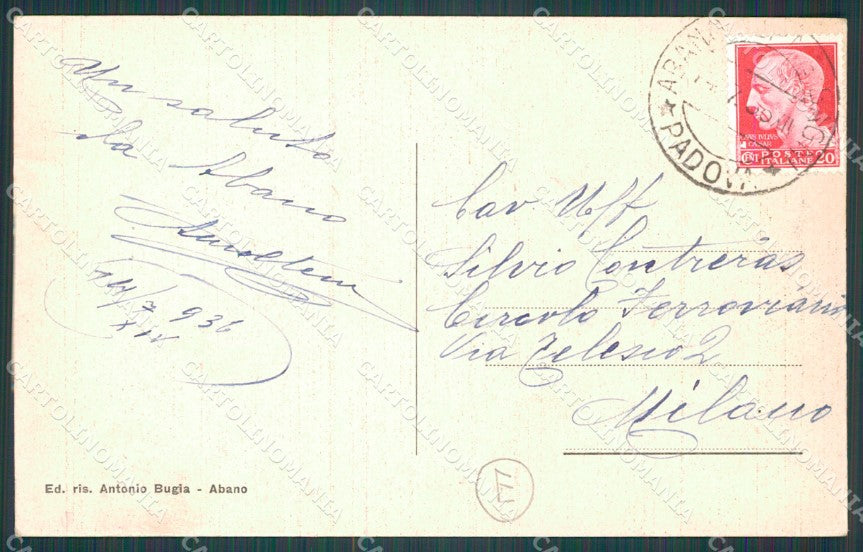 Un saluto
da Abano
14/7/936
XIV
Ed. ris. Antonio Bugia - Abano
ABANO
PADOVA
IVLIVS
CAESAR
POSTE
ITALIANE 20
Cav Uff
Silvio Contreras
Circolo Ferroviario
Via Telesio 2
Milano
CARTOLINOMANIA